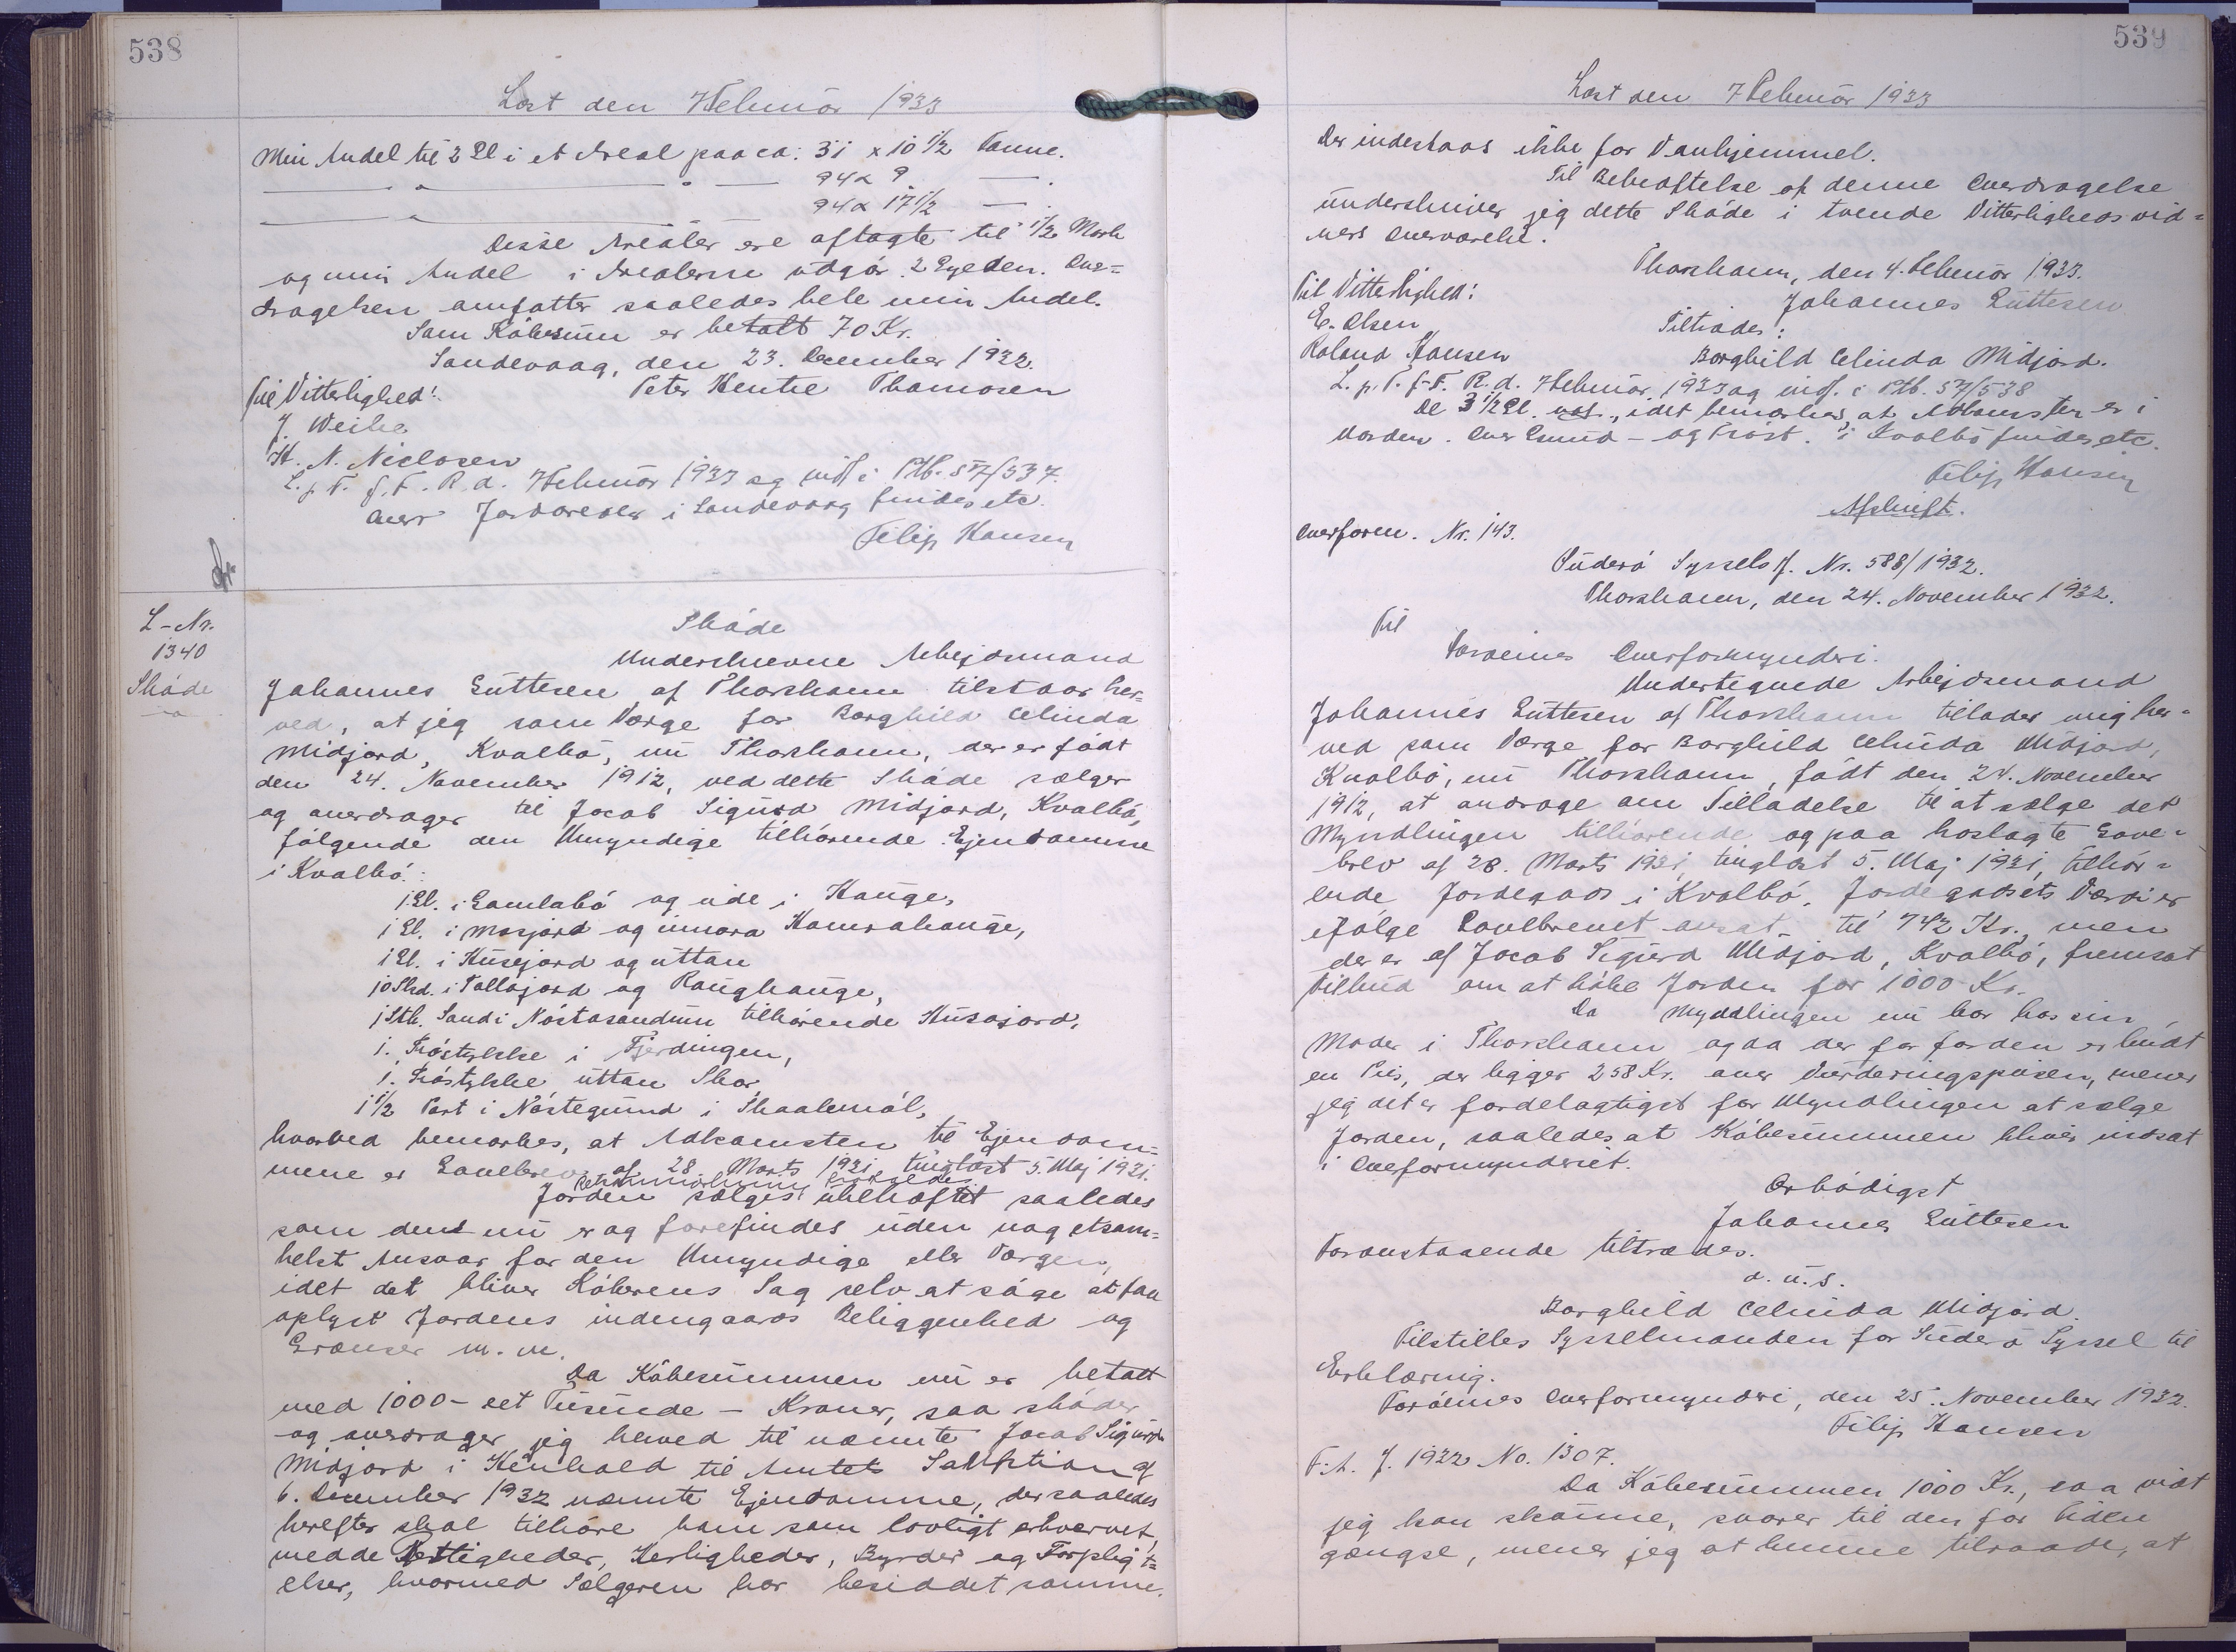 538
Læst den 7 Februar 1933
Min Andel til 2 Gl i et Areal paa ca: 31 x 10 1/2 Favne.
— " — " — 94 x 9 — .
— " — 94 x 17 1/2 — .
Disse Arealer ere aftagte til 1/2 Mark
og min Andel i Arealerne udgør 2 Gylden. Over=
dragelsen omfatter saaledes hele min Andel.
Som Købesum er betalt 70 Kr.
Sandevaag, den 23. December 1932.
Til Vitterlighed: Peter Hentze Thomsen
J. Weihe
H. N. Niclasen
L. p. T. f. F. R. d. 7 Februar 1933 og indf i Ptb. S 7/537.
Over Jordarealer i Sandevaag findes etc.
Filip Hansen
L-Nr.
1340
Skøde
Skøde
Underskrevne Arbejdsmand
Johannes Guttesen af Thorshavn tilstaar her=
ved, at jeg som Værge for Borghild Celinda
Midjord, Kvalbø, nu Thorshavn, der er født
den 24. November 1912, ved dette Skøde sælger
og overdrager til Jacob Sigurd Midjord, Kvalbø,
følgende den Umyndige tilhørende Ejendomme
i Kvalbø:
1 Gl. i Gamlabø og ude i Hauge,
1 Gl. i Mæsjord og innara Hamrahauge,
1 Gl. i Húsejord og uttan
10 Skd. i Pallajord og Ranghauge,
1 Stk. Sand i Nøstasandum tilhørende Húsajord,
1. Trøstykke i Fjerdingen,
1. Trøstykke uttan Skor,
1 1/2 Part i Nøstegrund i Skaalemøl,
hvorved bemærkes, at Adkomsten til Ejendom=
mene er Gavebrev af 28. Marts 1921, tinglæst 5. Maj 1921.
Jorden sælges ubehæftet saaledes
som den nu er og forefindes uden nogetsom=
helst Ansvar for den Umyndige eller Værgen,
idet det bliver Køberens Sag selv at søge at faa
oplyst Jordens indengaards Beliggenhed og
Grænser m. m.
Da Købesummen nu er betalt
med 1000 - eet Tusinde - Kroner, saa skøder
og overdrager jeg herved til nævnte Jacob Sigurd
Midjord i Henhold til Amtets Sanktion af
6. December 1932 nævnte Ejendomme, der saaledes
herefter skal tilhøre ham som lovligt erhvervet,
med de Rettigheder, Herligheder, Byrder og Forpligt=
elser, hvormed Sælgeren har besiddet samme.
539
Læst den 7 Februar 1933
Der indestaas ikke for Vanhjemmel.
Til Bekræftelse af denne Overdragelse
underskriver jeg dette Skøde i tvende Vitterlighedsvid=
ners Overværelse.
Thorshavn, den 4. Februar 1933.
Til Vitterlighed: Johannes Guttesen
E. Olsen Tiltrædes:
Roland Hansen Borghild Celinda Midjord.
L. p. T. f. F. R. d. 7 Februar 1933 og indf. i Ptb. S 7/538
De 3 1/2 Gl. idet bemærkes, at Adkomsten er i
Orden. Over Grund- og Trøst. i Kvalbø findes etc.
Filip Hansen
Afskrift.
Overform. Nr. 143.
Suderø Syssels J. Nr. 588/1932.
Thorshavn, den 24. November 1932.
Til
Færøernes Overformynderi.
Undertegnede Arbejdsmand
Johannes Guttesen af Thorshavn tillader mig her=
ved som Værge for Borghild Celinda Midjord,
Kvalbø, nu Thorshavn, født den 24. November
1912, at andrage om Tilladelse til at sælge det
Myndlingen tilhørende og paa hoslagte Gave=
brev af 28. Marts 1921, tinglæst 5. Maj 1921, tilhør=
ende Jordegods i Kvalbø. Jordegodsets Værdi er
ifølge Gavebrevet ansat til 742 Kr., men
der er af Jacob Sigurd Midjord, Kvalbø, fremsat
Tilbud om at købe Jorden for 1000 Kr.
Da Myndlingen nu bor hos sin
Moder i Thorshavn og da der for Jorden er budt
en Pris, der ligger 258 Kr. over Vurderingsprisen, mener
jeg det er fordelagtigst for Myndlingen at sælge
Jorden, saaledes at Købesummen bliver indsat
i Overformynderiet.
Ærbødigst
Johannes Guttesen
Foranstaaende tiltrædes.
d. u. s.
Borghild Celinda Midjord.
Tilstilles Sysselmanden for Suderø Syssel til
Erklæring.
Færøernes Overformynderi, den 25. November 1932.
Filip Hansen
F. A. J. 1932 No. 1307.
Da Købesummen 1000 Kr., saa vidt
jeg kan skønne, svarer til den for Tiden
gængse, mener jeg at kunne tilraade, at